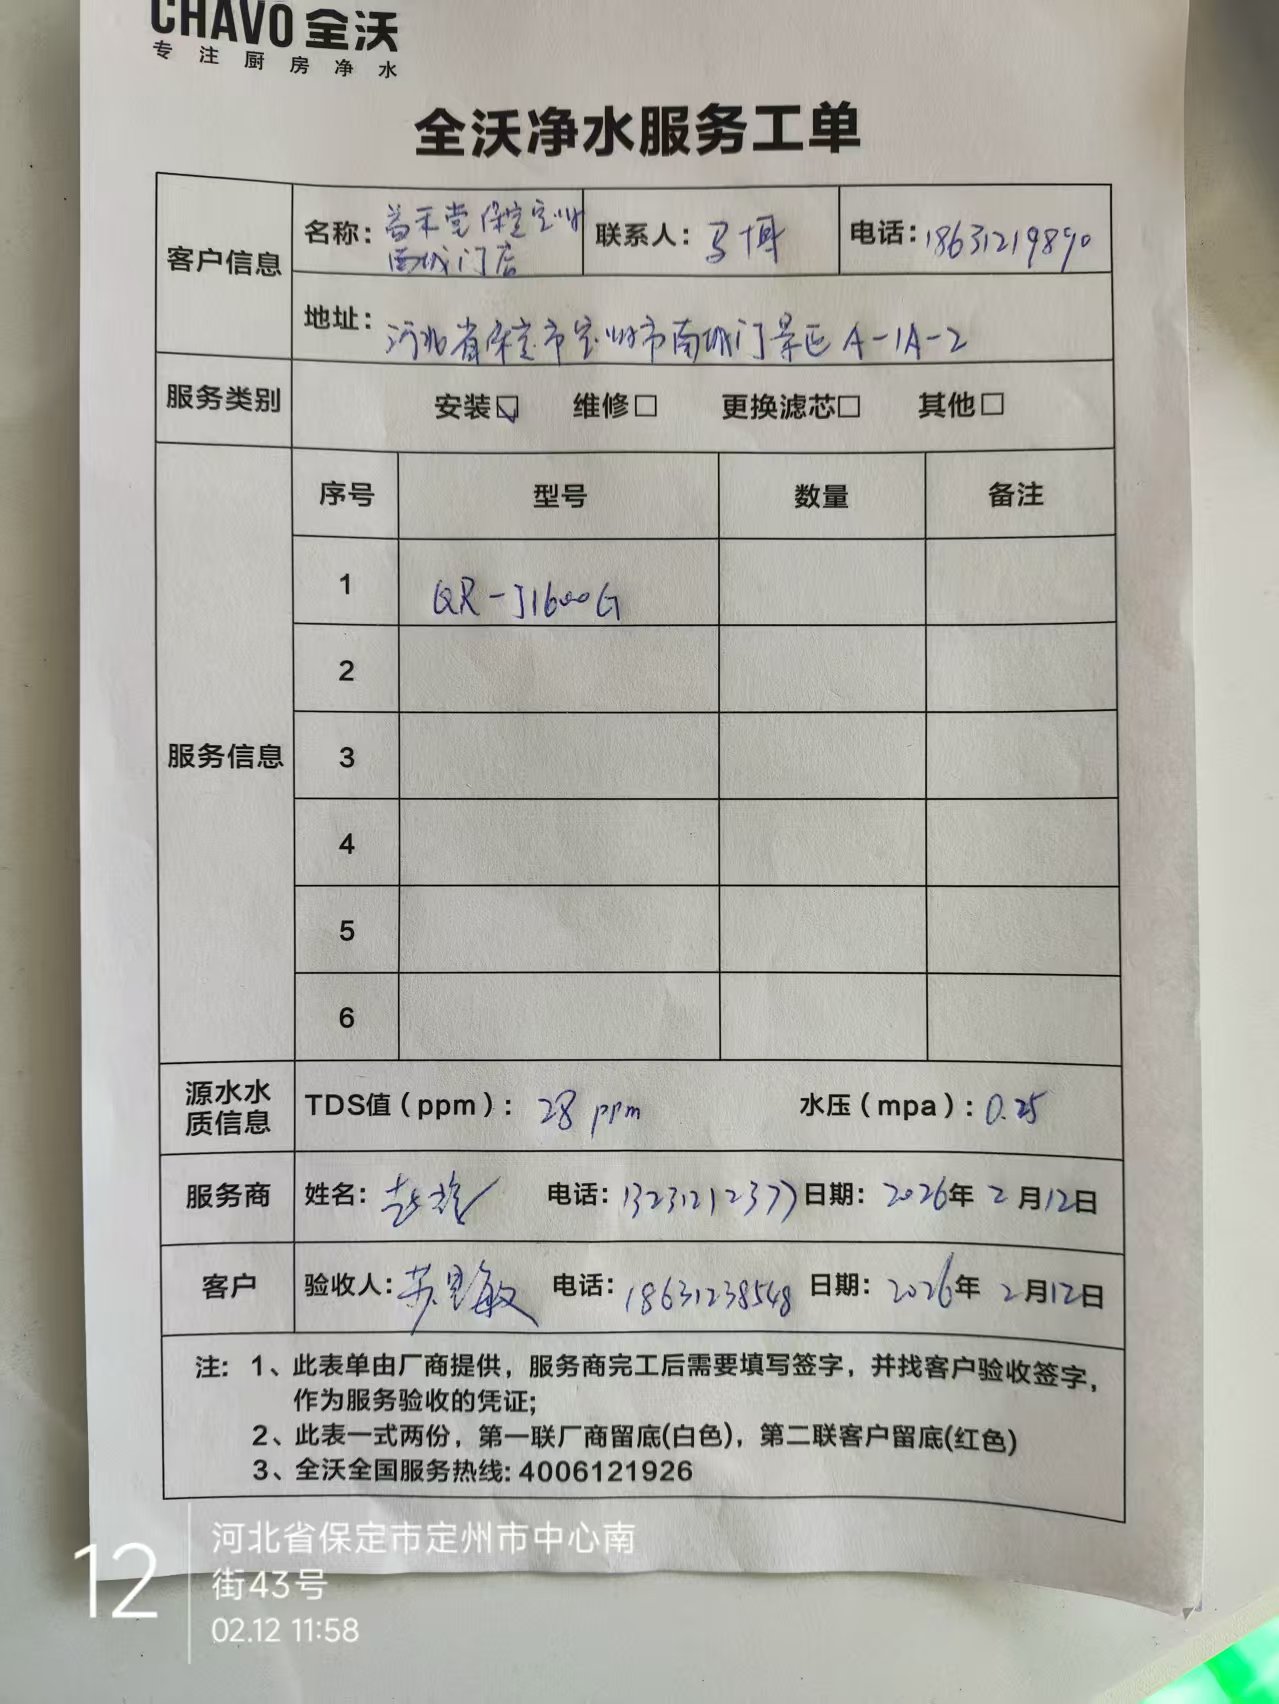 CHAVO 全沃
专注厨房净水
全沃净水服务工单
客户信息
名称：益禾堂保定定州
南城门店
联系人：马博
电话：18631219890
地址：河北省保定市定州市南城门景区A-1A-2
服务类别
安装☑ 维修□ 更换滤芯□ 其他□
服务信息
序号 型号 数量 备注
1 QR-J1600G
2
3
4
5
6
源水水
质信息
TDS值（ppm）：28 ppm 水压（mpa）：0.25
服务商 姓名： 电话：13231212377 日期：2026年2月12日
客户 验收人： 电话：18631238548 日期：2026年2月12日
注：1、此表单由厂商提供，服务商完工后需要填写签字，并找客户验收签字，
作为服务验收的凭证；
2、此表一式两份，第一联厂商留底(白色)，第二联客户留底(红色)
3、全沃全国服务热线：4006121926
12
河北省保定市定州市中心南
街43号
02.12 11:58